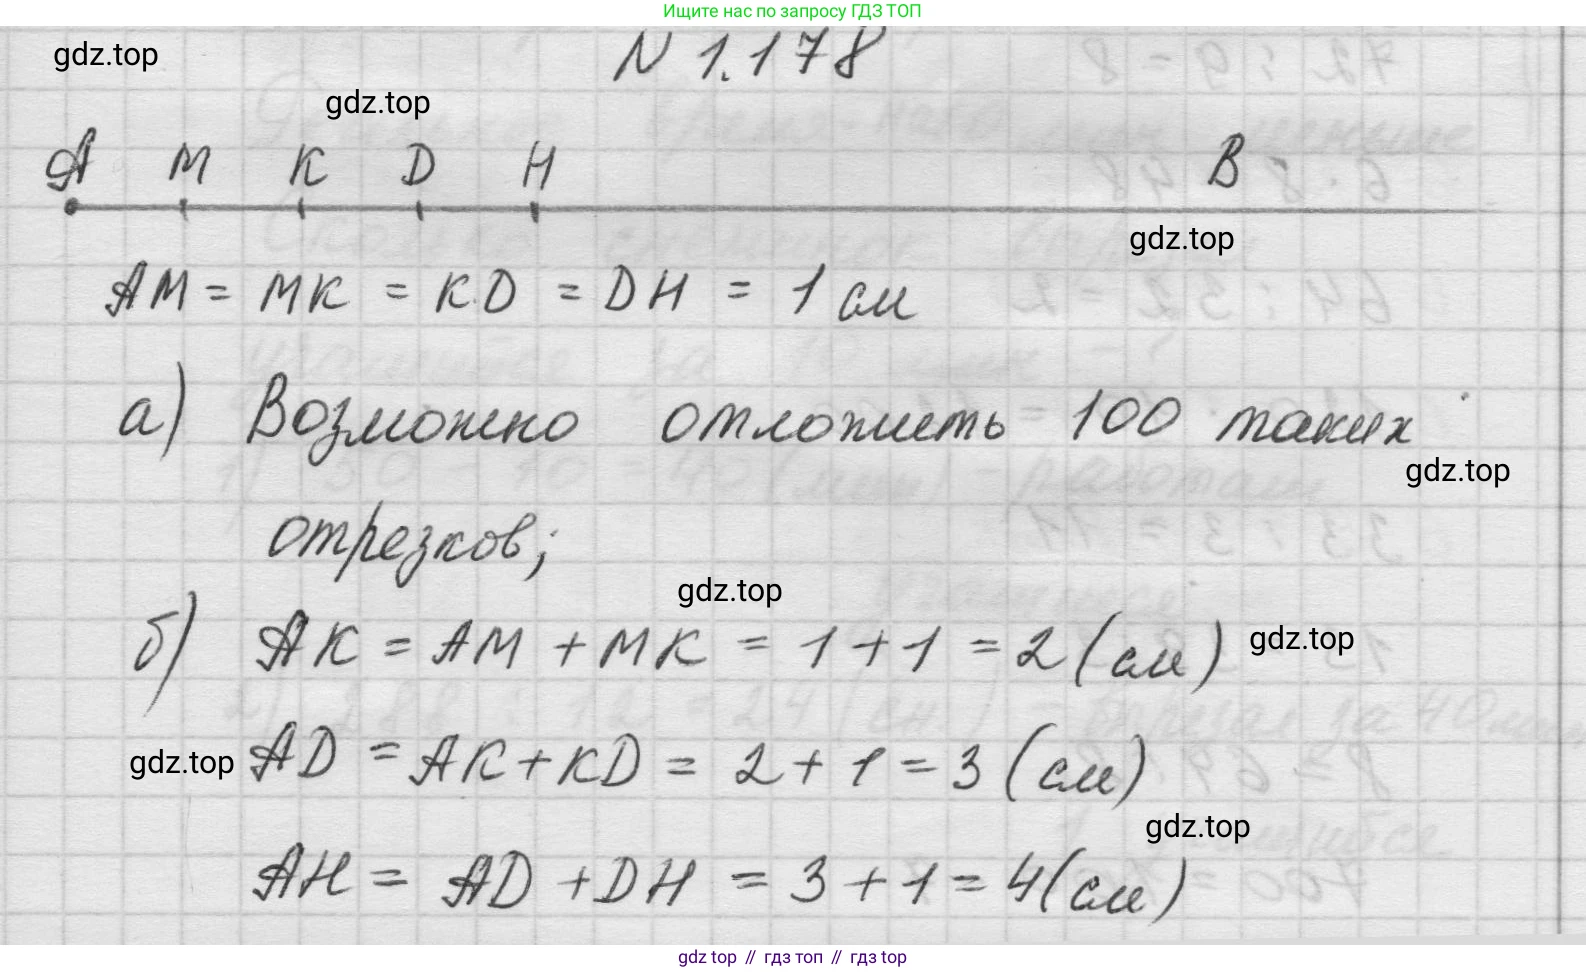 Ищите нас по запросу ГДЗ ТОП
gdz.top
N 1.178
gdz.top
A M K D H B
gdz.top
AM = MK = KD = DH = 1 см
а) Возможно отложить 100 таких
gdz.top
отрезков;
gdz.top
б) AK = AM + MK = 1 + 1 = 2 (см) gdz.top
gdz.top AD = AK + KD = 2 + 1 = 3 (см)
gdz.top
AH = AD + DH = 3 + 1 = 4 (см)
gdz top // гдз топ // gdz top